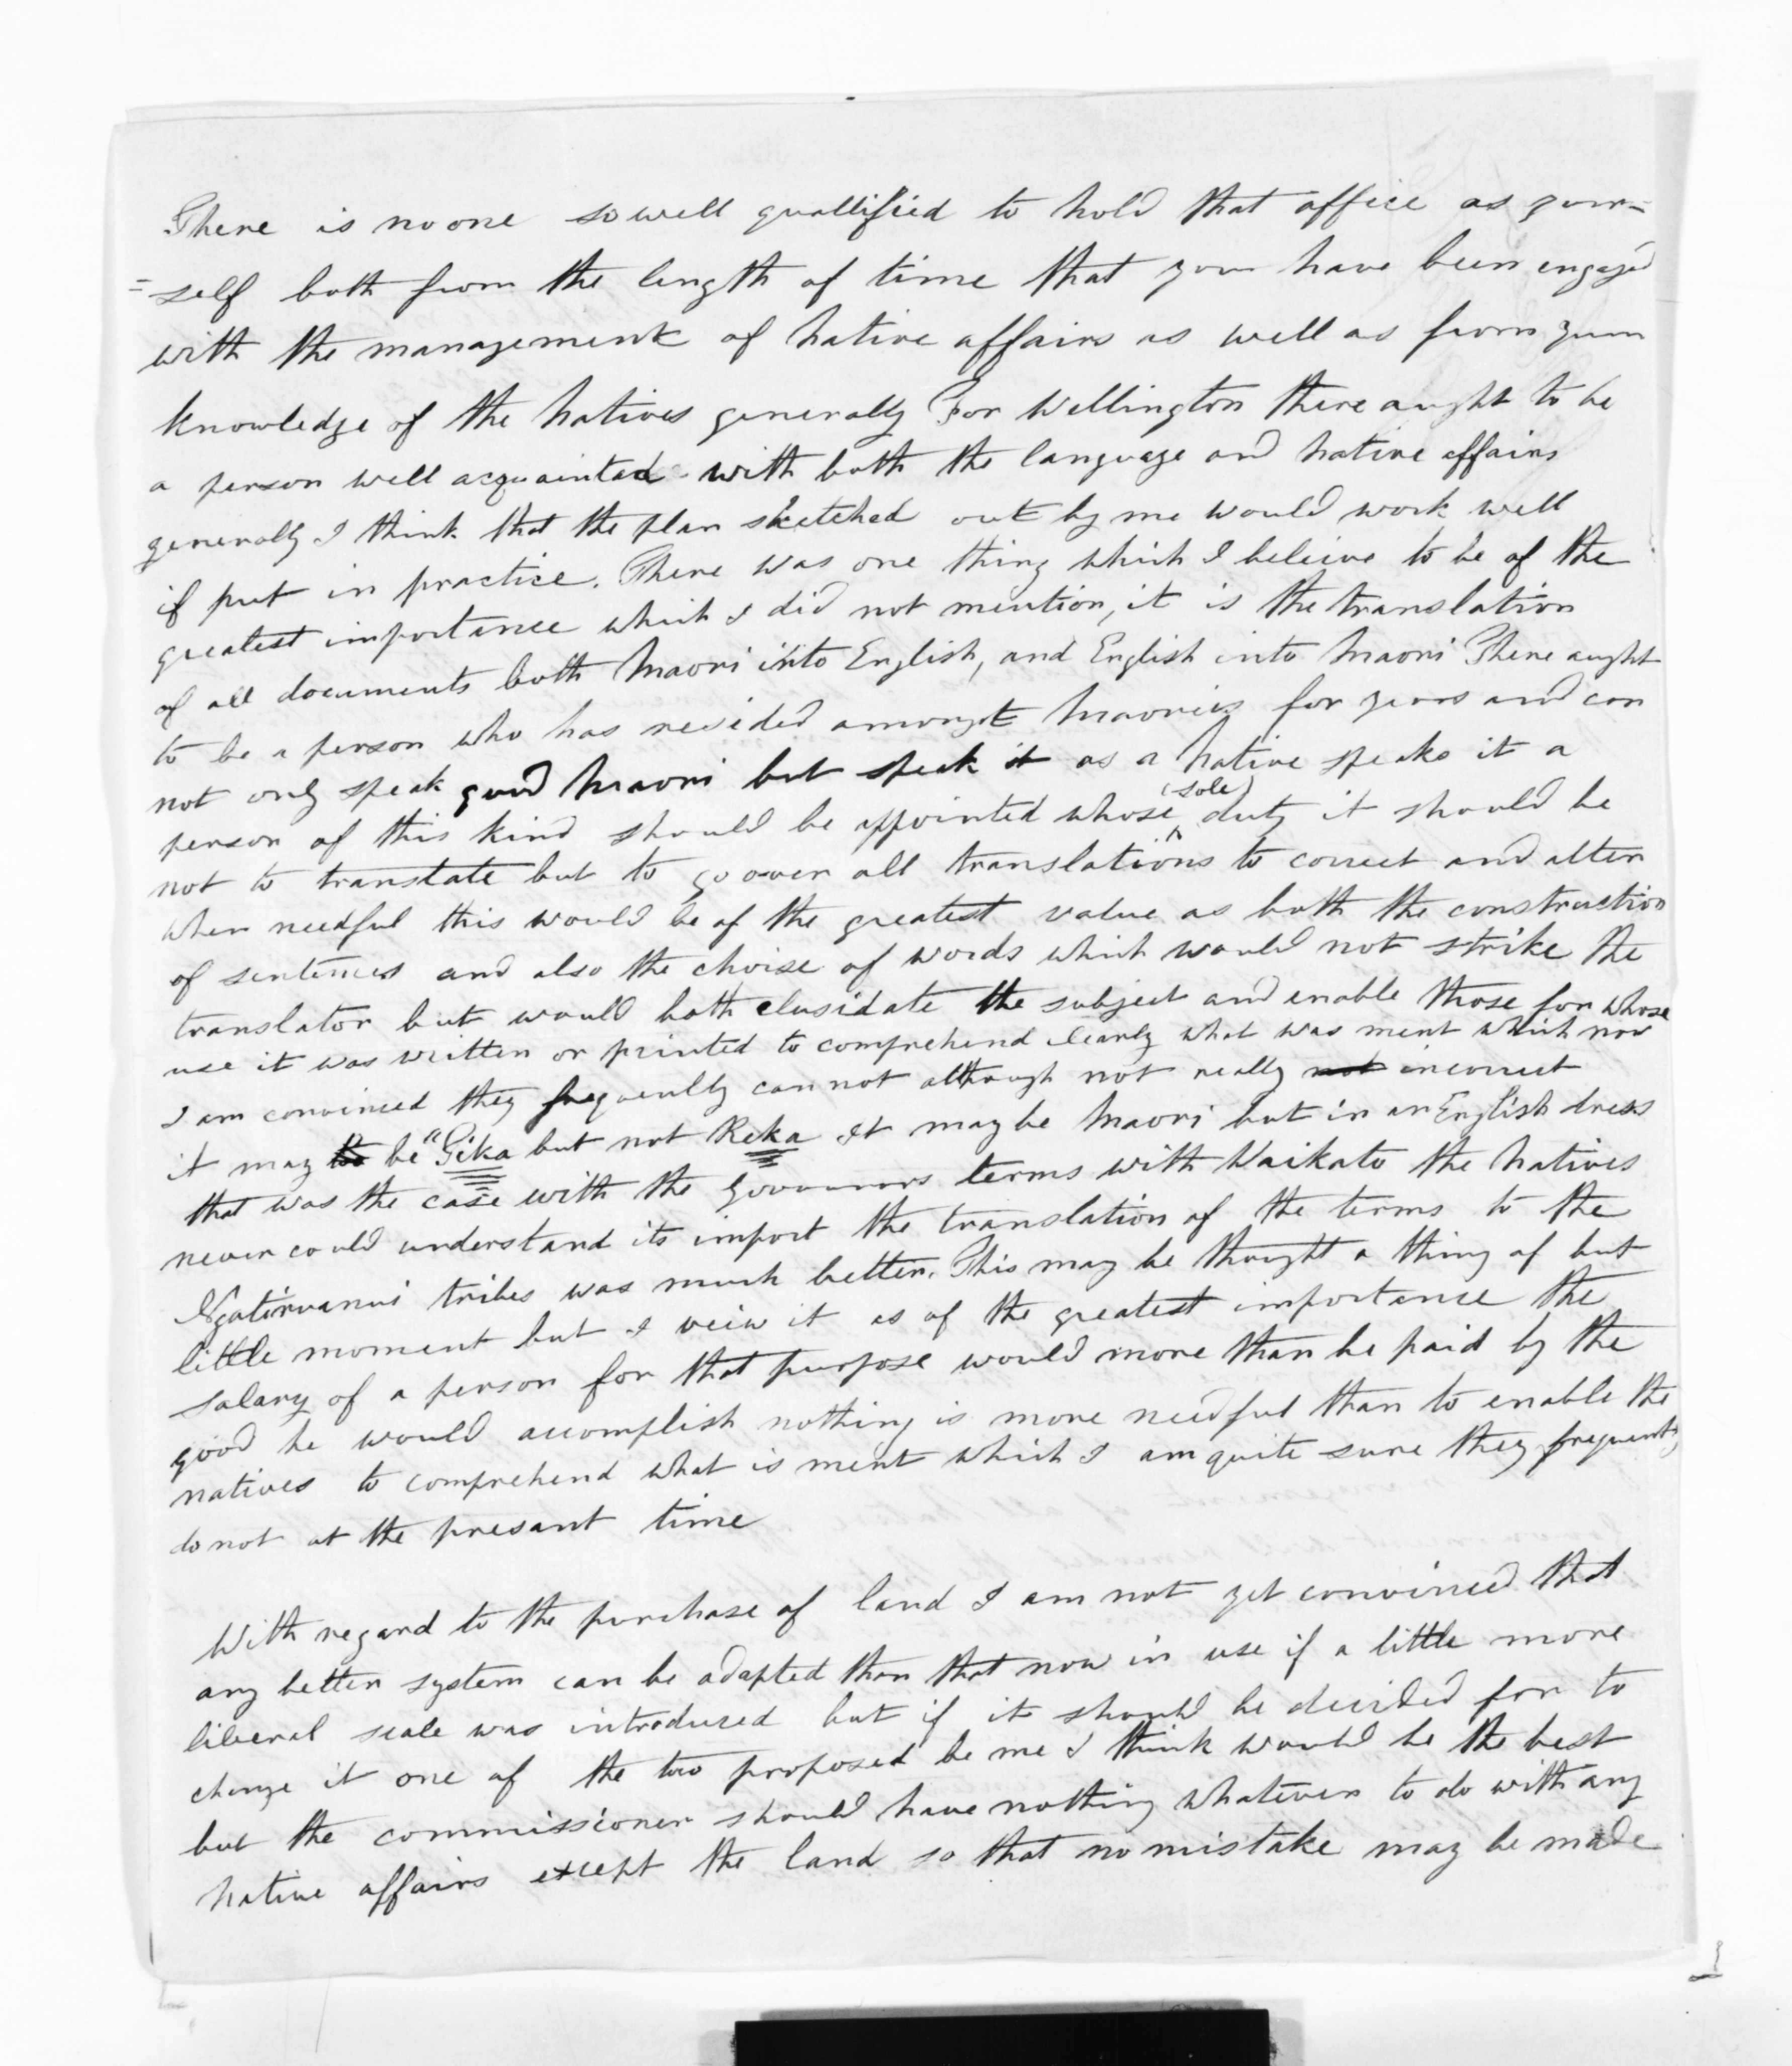 There is no one so well quallified to hold that office as your=
=self both from the length of time that you have been engaged
with the management of native affairs as well as from your
knowledge of the natives generally For Wellington there aught to be
a person well acquainted with both the language and native affairs
generally I think that the plan sketched out by me would work well
if put in practice. There was one thing which I beleive to be of the
greatest importance which I did not mention, it is the translation
of all documents both Maori into English, and English into Maori There aught
to be a person who has resided amongst Maories for years and can
not only speak good Maori but speak it as a native speaks it a
person of this kind should be appointed whose (sole) duty it should be
not to translate but to go over all translations to correct and alter
when needful this would be of the greatest value as both the construction
of sentences and also the choise of words which would not strike the
translator but would both elusidate the subject and enable those for whose
use it was written or printed to comprehend clearly what was ment which now
I am convinced they frequently can not although not really not incorrect
it may be "Tika but not Reka It may be Maori but in an English dress
that was the case with the Governors terms with Waikato the natives
never could understand its import the translation of the terms to the
Ngatiruanui tribes was much better. This may be thought a thing of but
little moment but I veiw it as of the greatest importance the
salary of a person for that purpose would more than be paid by the
good he would accomplish nothing is more needful than to enable the
natives to comprehend what is ment which I am quite sure they frequently
do not at the presant time
With regard to the purchase of land I am not yet convinced that
any better system can be adapted than that now in use if a little more
liberal scale was introduced but if it should be decided for to
change it one of the two proposed be me I think would be the best
but the commissioner should have nothing whatever to do with any
native affairs except the land so that no mistake may be made